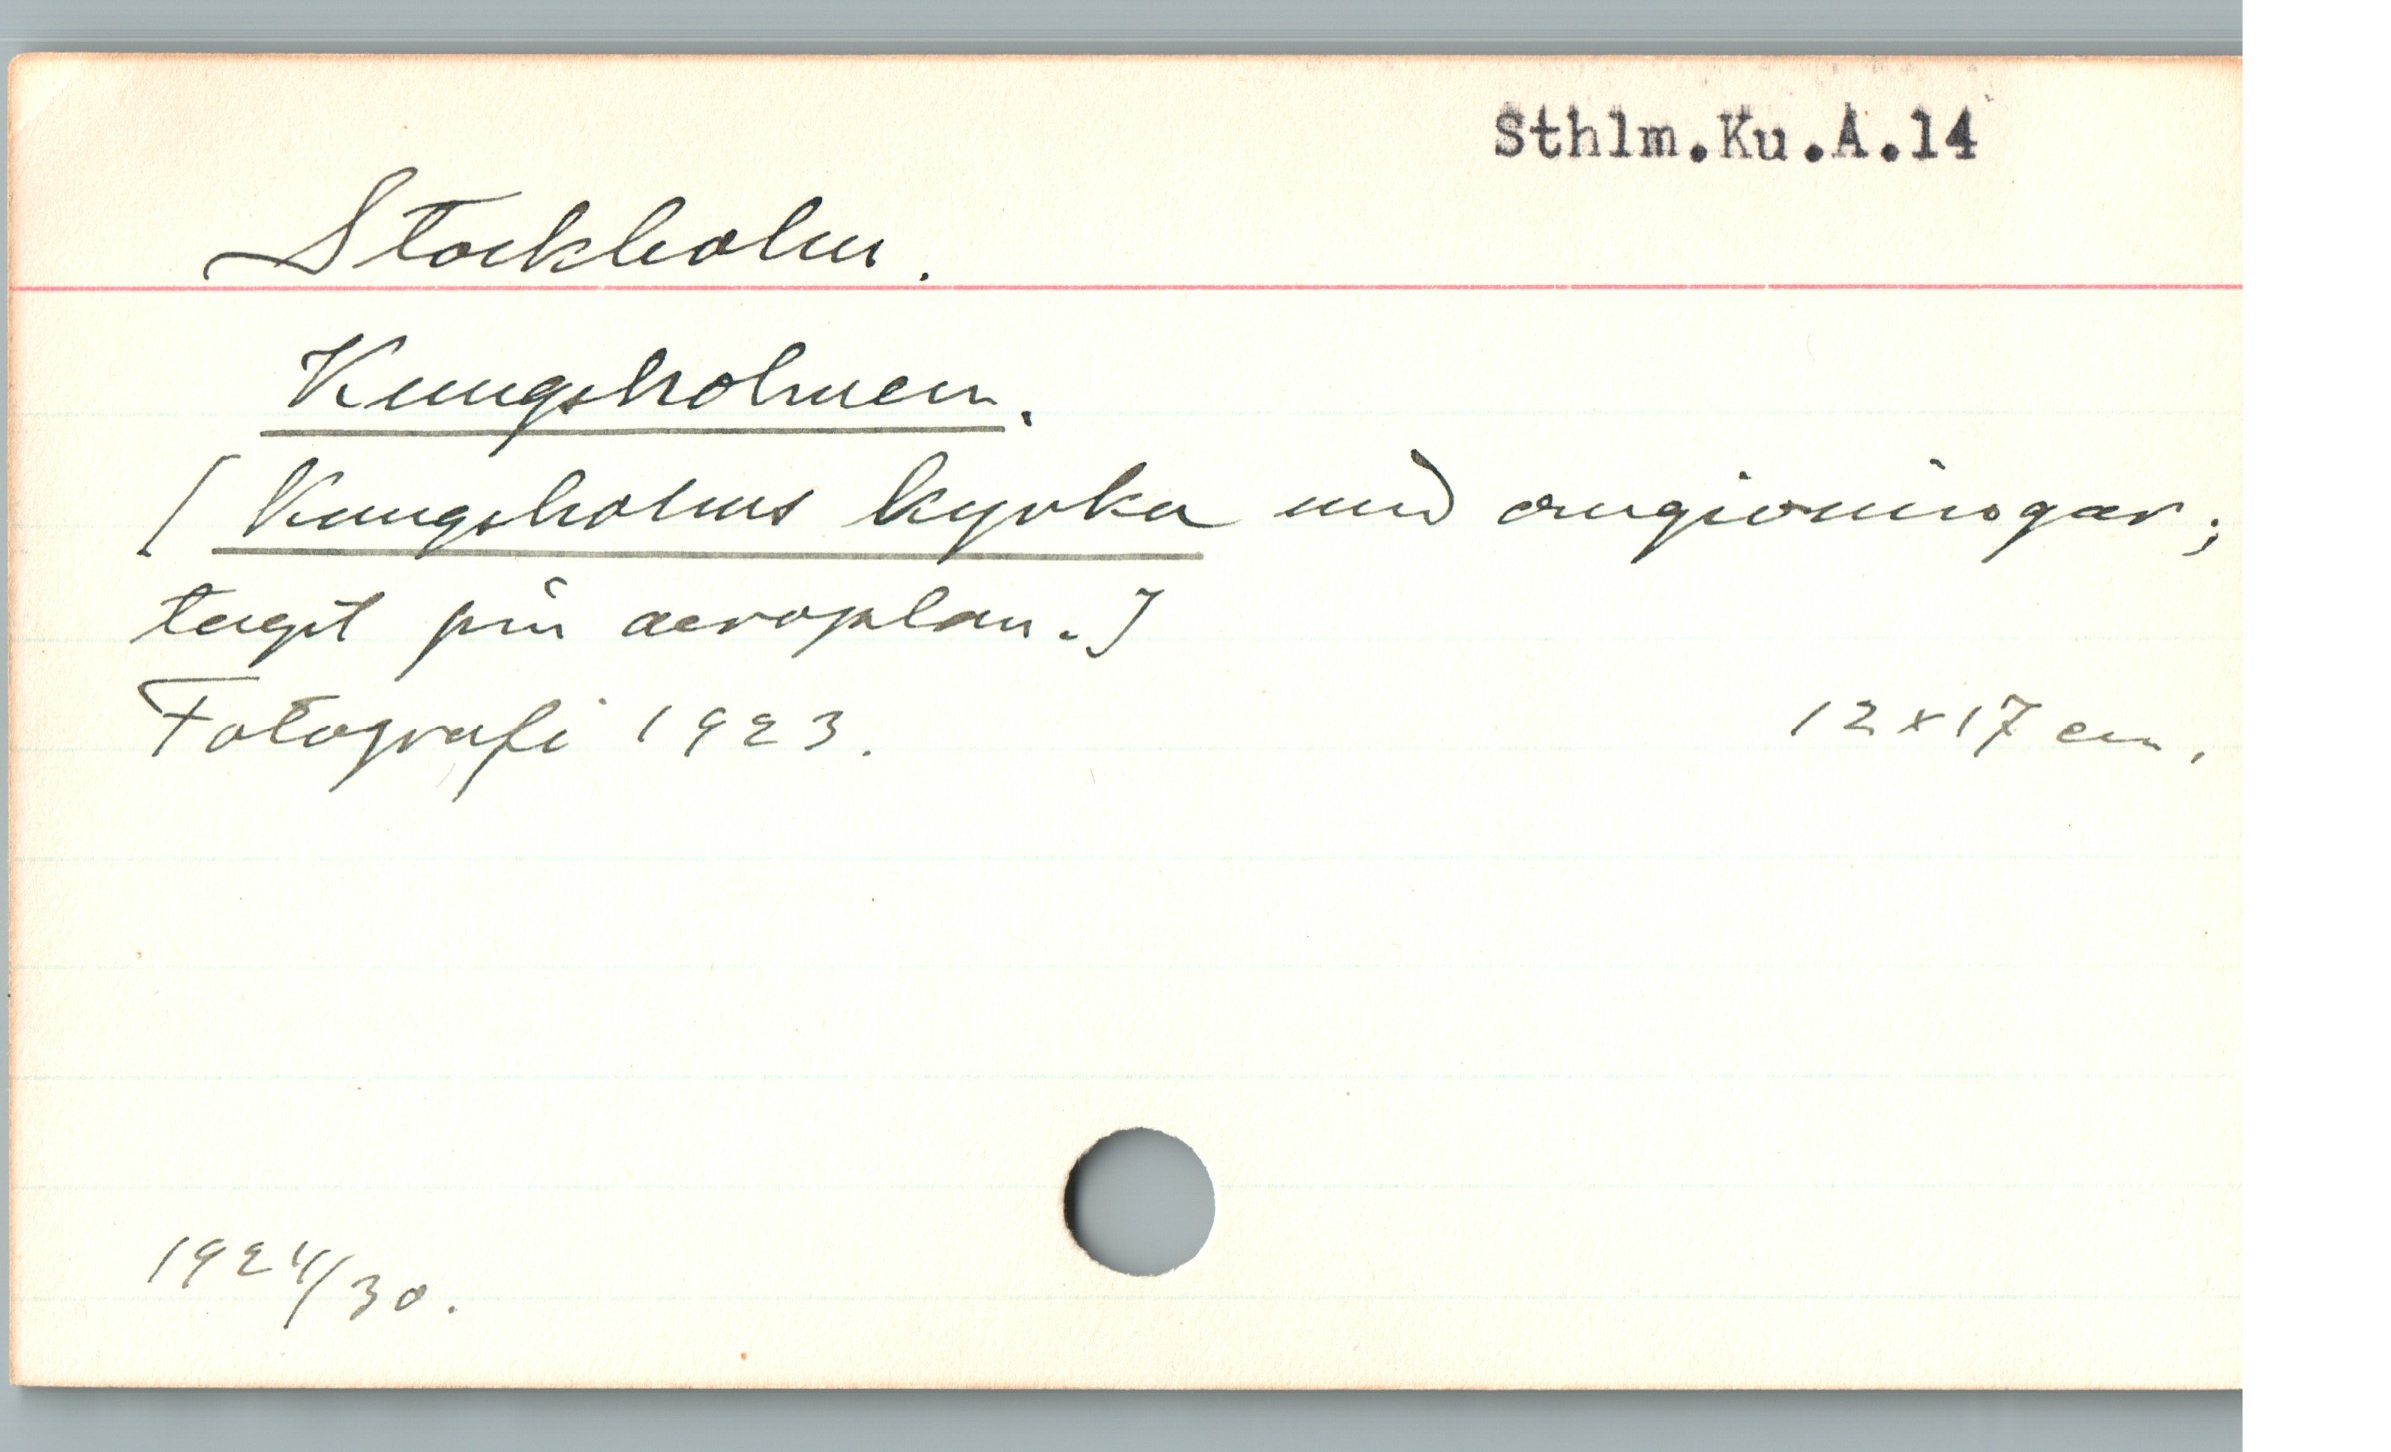 Sthlm.Ku.A.14
Stockholm.
Kungsholmen.
[Kungsholms kyrka med omgivningar;
tagit från aeroplan.]
Fotografi 1923. 12x17 cm.
1924/30.